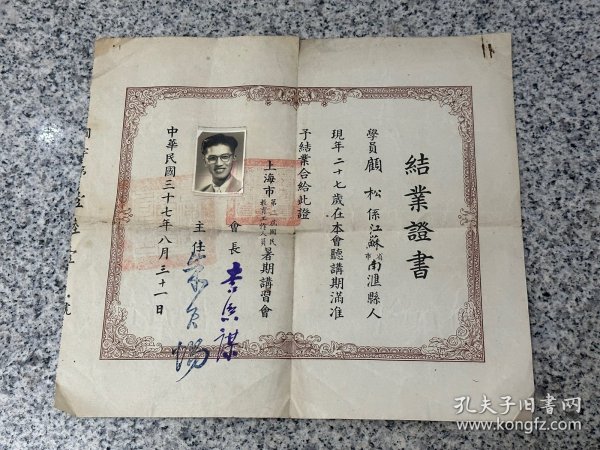 結業證書
學員顧松係江蘇省市南滙縣人
現年二十七歲在本會聽講期滿准
予結業合給此證
上海市第二次國民教育工作人員暑期講習會
會長
主任
中華民國三十七年八月三十一日
孔夫子旧书网
kongfz.com